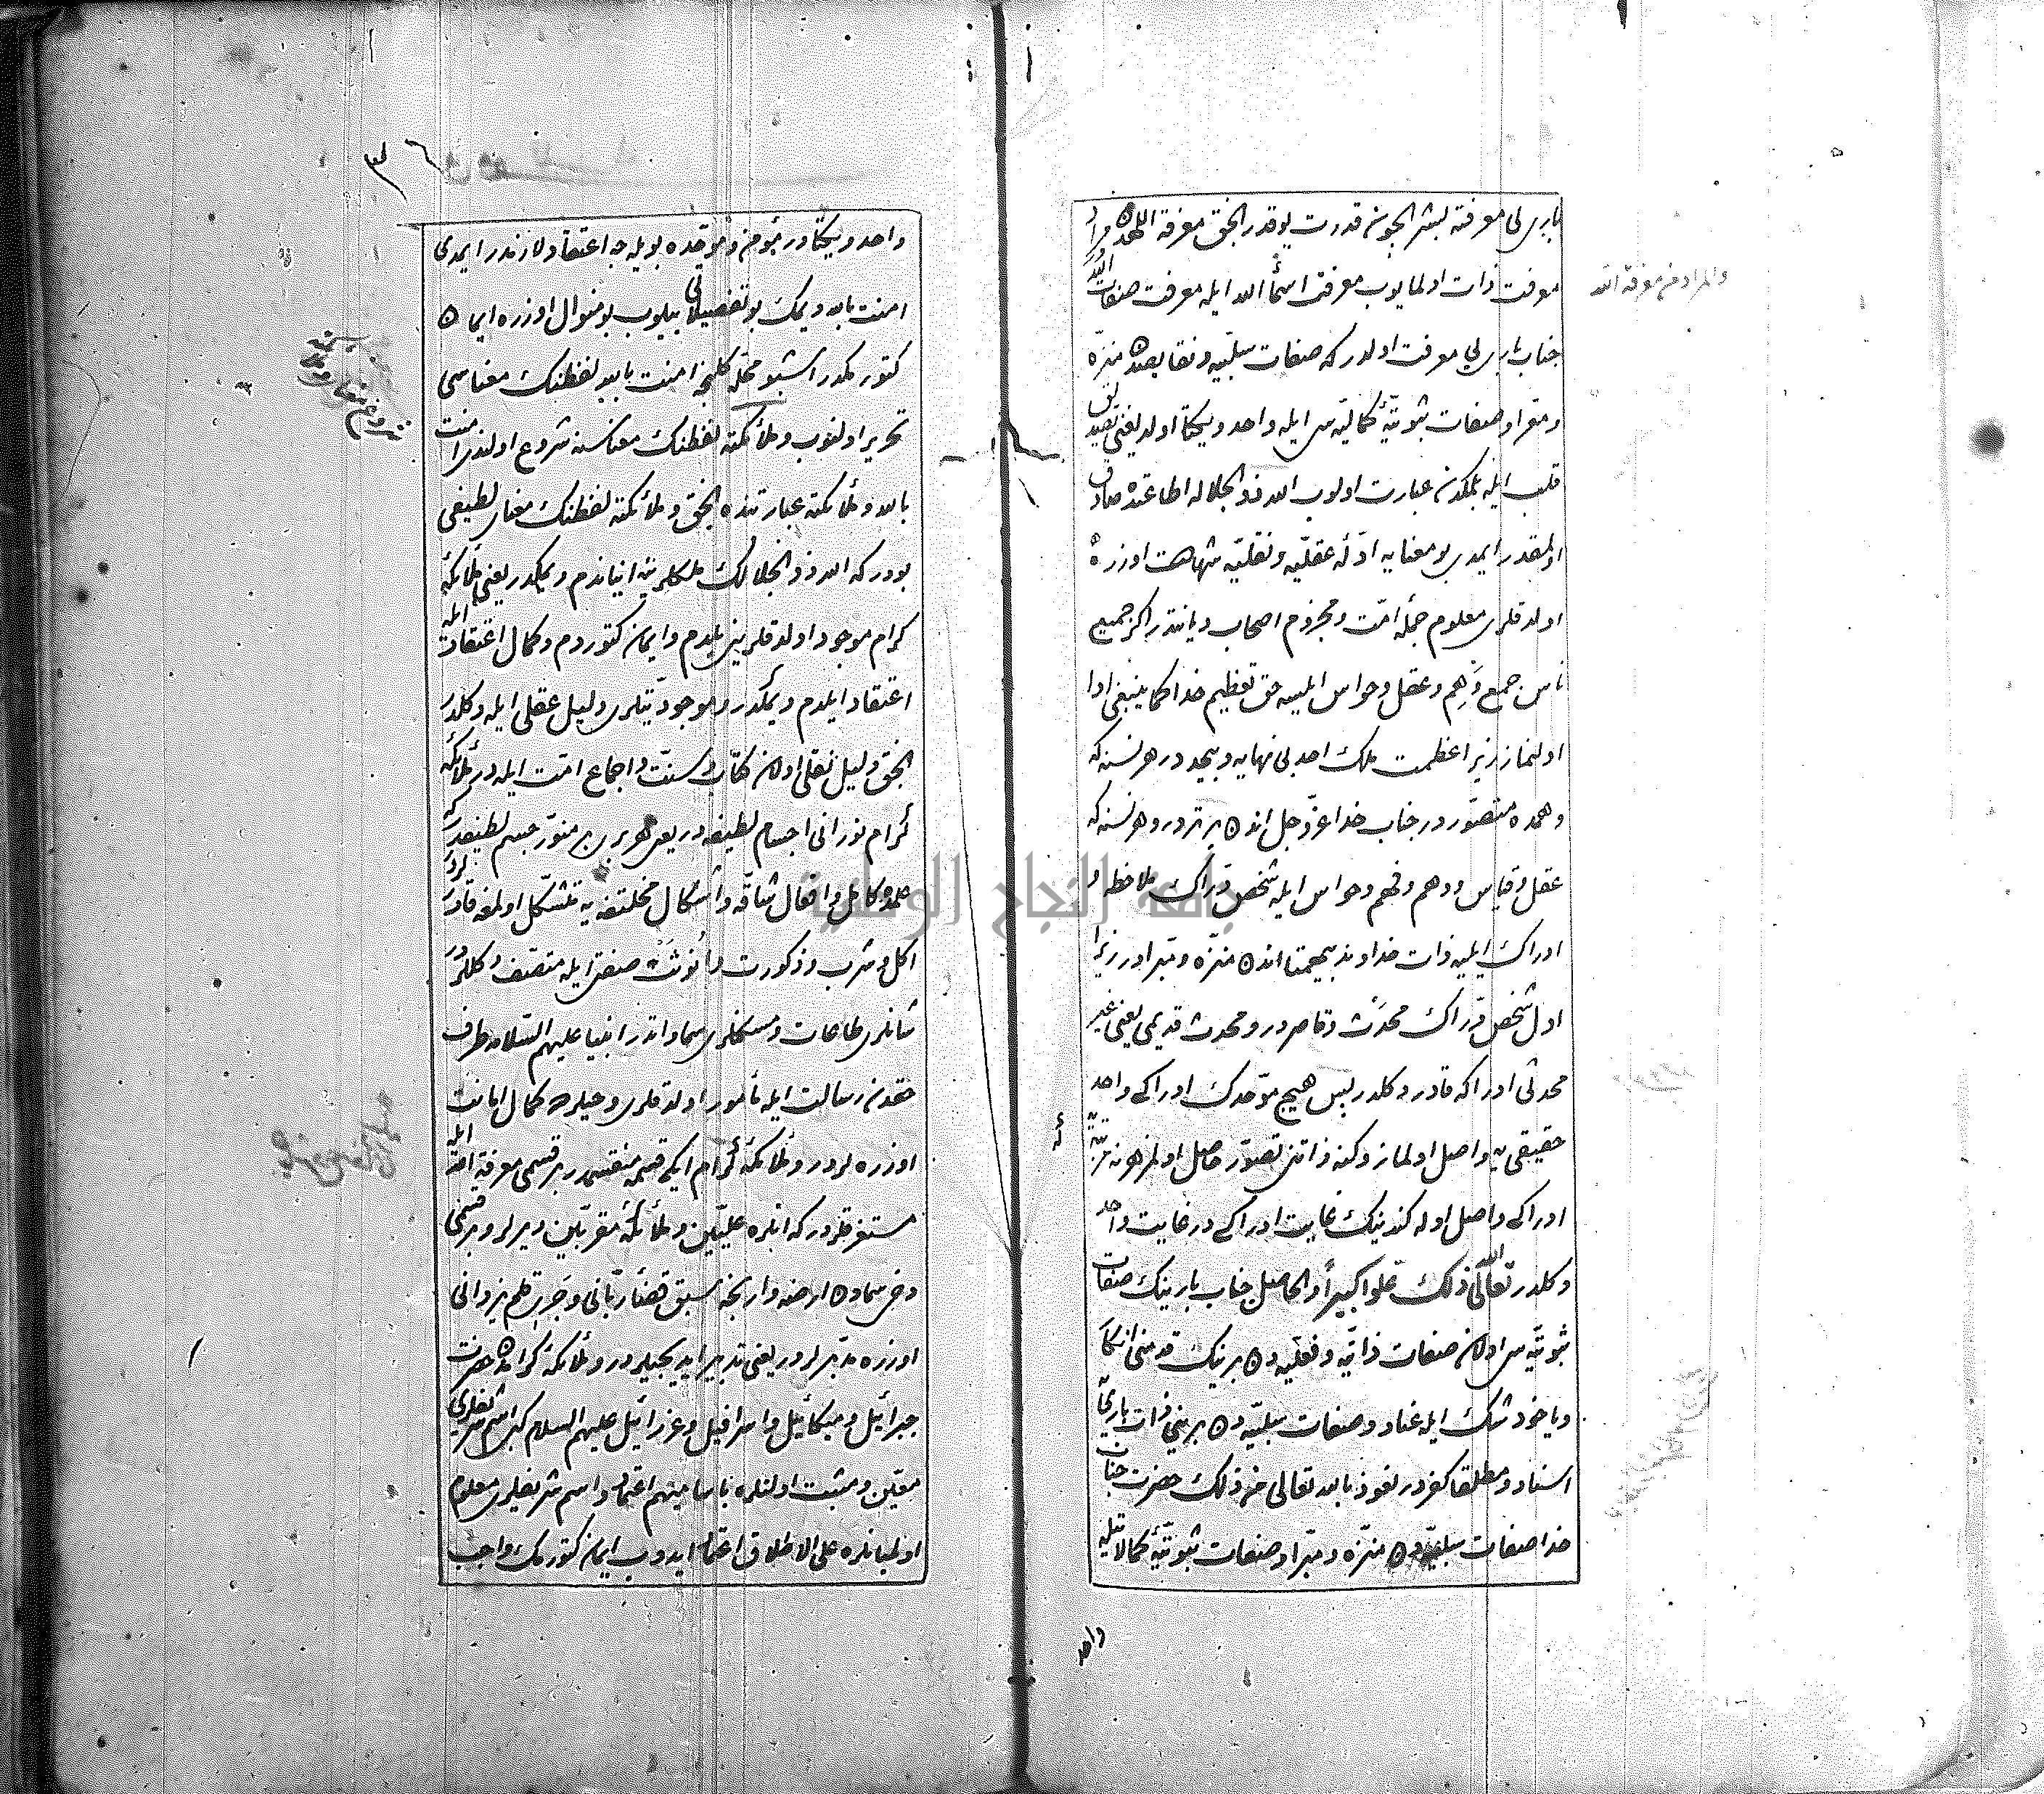 باری لی معرفته بشر ایچون قدرت یوقدر الحق معرفة اللهدن مراد
معرفت ذات اولمایوب معرفت اسماء الله ایله معرفت صفات الله در
جناب باری لی معرفت اولدر که صفات سلبیه و نقایصدن منزه
و متبرا و صفات ثبوتیهٔ کمالیه سی ایله واحد و یکتا اولدیغنی تصدیق
قلب ایله بلمکدن عبارت اولوب الله ذو الجلاله اطاعتده صادق
اولمقدر ایمدی بو معنایه ادلهٔ عقلیه و نقلیه شهادت اوزره
اولدقلری معلوم جملهٔ امت و مجزوم اصحاب دیانتدر اکر جمیع
ناس جمیع وهم و عقل و حواس ایلیسه حق تعظیم خدا کما ینبغی ادا
اولنماز زیرا عظمت ملک احد بی نهایه و بیحد در هر نسنه که
وهمده متصور در جناب خدا عز و جل اندن برتر در و هر نسنه که
عقل و قیاس و وهم و فهم و حواس ایله شخص دراک ملاحظه و
ادراک ایلیه ذات خداوند بیهمتا اندن منزه و مبرادر زیرا
اول شخص دراک محدث و قاصر در و محدث قدیمی یعنی غیر
محدثی ادراکه قادر دکلدر پس هیچ موحدک ادراکی واحد
حقیقی یه واصل اولماز و کنه ذاتنی تصور حاصل اولمز هر نه
ادراکی واصل اوله کندینک غایت ادراکی در غایت واحد
دکلدر تعالی الله ذلک علوا کبیرا والحاصل جناب بارینک صفات
ثبوتیه سی اولان صفات ذاتیه و فعلیه دن برینک قدمنی انکار
و یاخود شک ایله عناد و صفات سلبیه دن برینی ذات باری
اسناد و مطلقا کفر در نعوذ بالله تعالی من ذلک حضرت جناب
خدا صفات سلبیه دن منزه و مبرا و صفات ثبوتیهٔ کمالاتیله
واحد
والمراد من معرفة الله
واحد و یکتا در مؤمن و موحده بویله جه اعتقاد لازمدر ایمدی
امنت بالله دیمک بو تفصیلاتی بیلوب بو منوال اوزره ایمان
کتورمکدر اشبو محله کلنجه امنت بالله لفظنک معناسی
تحریر اولنوب و ملائکته لفظنک معناسنه شروع اولندی امنت
بالله و ملائکته عبارتنده الحق و ملائکته لفظنک معنای لطیفی
بودر که الله ذو الجلالک ملکلرینه ایناندم دیمکدر یعنی ملائکهٔ
کرام موجود اولدقلرینی بلدم و ایمان کتوردم و کمال اعتقاد ایله
اعتقاد ایلدم دیمکدر و موجودیتلری دلیل عقلی ایله دکلدر
الحق دلیل نقلی اولان کتاب و سنت و اجماع امت ایله در ملائکهٔ
کرام نورانی اجسام لطیفه در یعنی هر بری بر منور جسم لطیفدر که
علمده کامل و افعال شاقه و اشکال مختلفه یه تتشکل اولمغه قادرلردر
اکل و شرب و ذکورت و انوثت صفتی ایله متصف دکللردر
شانلری طاعات و مسکنلری سماواتدر انبیا علیهم السلامه طرف
حقدن رسالت ایله مأمور اولدقلری وحیلرده کمال امانت
اوزره لردر و ملائکهٔ کرام ایکی قسمه منقسمدر بر قسمی معرفة الله ایله
مستغرقلردر که انلره علیین و ملائکهٔ مقربین دیرلر و بر قسمی
دخی سمادن ارضه وارنجه سبق قضاء ربانی و جری قلم یزدانی
اوزره مدبرلردر یعنی تدبیر ایدیجیلردر و ملائکهٔ کرامدن حضرت
جبرائیل و میکائیل و اسرافیل و عزرائیل علیهم السلام کبی اسم شریفلری
معین و مثبت اولنلره باسامیهم اعتقاد و اسم شریفلری معلوم
اولمیانلره علی الاطلاق اعتماد ایدوب ایمان کتورمک واجب
جامعة النجاح الوطنية